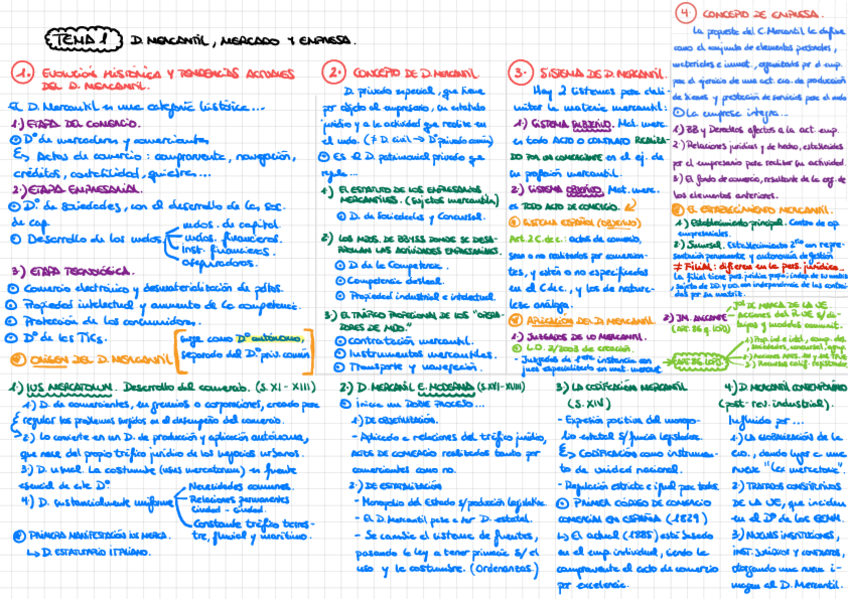 TEMA 1 D. MERCANTIL, MERCADO Y EMPRESA.
1. EVOLUCIÓN HISTÓRICA Y TENDENCIAS ACTUALES
DEL D. MERCANTIL.
El D. Mercantil es una categoría histórica...
1.) ETAPA DEL COMERCIO.
Dº de mercaderes y comerciantes
Actos de comercio: compraventa, navegación,
créditos, contabilidad, quiebras...
2.) ETAPA EMPRESARIAL.
Dº de Sociedades, con el desarrollo de las Soc.
de cap.
Desarrollo de los mdos.
mdos. de capital.
mdos. financieros.
Inst. financieras.
Aseguradoras.
3.) ETAPA TECNOLÓGICA.
Comercio electrónico y desmaterialización de pdtos.
Propiedad intelectual y aumento de la competencia.
Protección de los consumidores.
Dº de las TICs.
ORIGEN DEL D. MERCANTIL
surge como Dº autónomo,
separado del Dº priv. común
2. CONCEPTO DE D. MERCANTIL.
D. privado especial, que tiene
por objeto al empresario, su estatuto
jurídico y a la actividad que realiza en
el mdo. (≠ D. civil → Dº privado común)
Es el D. patrimonial privado que
regula...
1.) EL ESTATUTO DE LOS EMPRESARIOS
MERCANTILES. (sujetos mercantiles)
D. de Sociedades y Concursal.
2.) LOS MDOS. DE BB Y SS DONDE SE DESA-
RROLLAN LAS ACTIVIDADES EMPRESARIALES.
D. de la Competencia.
Competencia desleal.
Propiedad industrial e intelectual.
3.) EL TRÁFICO PROFESIONAL DE LOS "OPERA-
DORES DE MDO."
Contratación mercantil.
Instrumentos mercantiles.
Transporte y navegación.
3. SISTEMA DE D. MERCANTIL.
Hay 2 sistemas para deli-
mitar la materia mercantil:
1.) SISTEMA SUBJETIVO. Mat. merc.
es todo ACTO O CONTRATO REALIZA-
DO POR UN COMERCIANTE en el ej. de
su profesión mercantil.
2.) SISTEMA OBJETIVO. Mat. merc.
es TODO ACTO DE COMERCIO.
SISTEMA ESPAÑOL (OBJETIVO)
Art. 2 C. de c.: actos de comercio,
sean o no realizados por comercian-
tes, y estén o no especificados
en el C. de c., y los de natura-
leza análoga.
APLICACIÓN DEL D. MERCANTIL
1.) JUZGADOS DE LO MERCANTIL.
L.O. 8/2003 de creación.
- Juzgados de 1ª instancia con
jueces especializados en mat. mercant.
4. CONCEPTO DE EMPRESA.
La propuesta del C. Mercantil la define
como el conjunto de elementos personales,
materiales e inmat., organizados por el emp.
para el ejercicio de una act. eco. de producción
de bienes y prestación de servicios para el mdo.
La empresa integra...
1.) BB y Derechos afectos a la act. emp.
2.) Relaciones jurídicas y de hecho, establecidas
por el empresario para realizar su actividad.
3.) El fondo de comercio, resultante de la org. de
los elementos anteriores.
EL ESTABLECIMIENTO MERCANTIL.
1.) Establecimiento principal. Centro de op.
empresariales.
2.) Sucursal. Establecimiento 2º con repre-
sentación permanente y autonomía de gestión
≠ FILIAL: difieren en la pers. jurídica...
La filial tiene pers. jurídica propia
por su matriz.
2.) JM. ALICANTE
(ART. 86 LOPJ)
1.) IUS MERCATORUM. Desarrollo del comercio. (S. XI - XIII)
1.) D. de comerciantes, en gremios o corporaciones, creado para
regular los problemas surgidos en el desempeño del comercio.
2.) Lo convierte en un D. de producción y aplicación autónoma,
que nace del propio tráfico jurídico de los negocios urbanos.
3.) D. usual. La costumbre (usus mercatorum) es fuente
esencial de este Dº
4.) D. sustancialmente uniforme
Necesidades comunes.
Relaciones permanentes
ciudad - ciudad.
Constante tráfico terres-
tre, fluvial y marítimo.
PRIMERA MANIFESTACIÓN IUS MERCA.
D. ESTATUTARIO ITALIANO.
2.) D. MERCANTIL E. MODERNA (S. XVI-XVIII)
Inicia un DOBLE PROCESO...
1.) DE OBJETIVACIÓN.
- Aplicado a relaciones del tráfico jurídico,
ACTOS DE COMERCIO realizados tanto por
comerciantes como no.
2.) DE ESTATALIZACIÓN
- Monopolio del Estado s/ producción legislativa.
- El D. Mercantil pasa a ser D. estatal.
- Se cambia el sistema de fuentes,
pasando la ley a tener primacía s/ el
uso y la costumbre. (Ordenanzas.)
3.) LA CODIFICACIÓN MERCANTIL
(S. XIX)
- Expresión positiva del monopo-
lio estatal s/ función legisladora.
CODIFICACIÓN como instrumen-
to de unidad nacional.
- Regulación estricta e igual para todos
PRIMER CÓDIGO DE COMERCIO
COMERCIAL EN ESPAÑA (1829)
El actual (1885) está basado
en el emp. individual, siendo la
compraventa el acto de comercio
por excelencia.
4.) D. MERCANTIL CONTEMPORÁNEO
(post-rev. industrial).
Influido por...
1.) LA GLOBALIZACIÓN DE LA
ECO., dando lugar a una
nueva "lex mercatoria".
2.) TRATADOS CONSTITUTIVOS
DE LA UE, que inciden
en el Dº de los EEMM.
3.) NUEVAS INSTITUCIONES,
INST. JURÍDICOS Y CONTRATOS,
otorgando una nueva i-
magen al D. Mercantil.